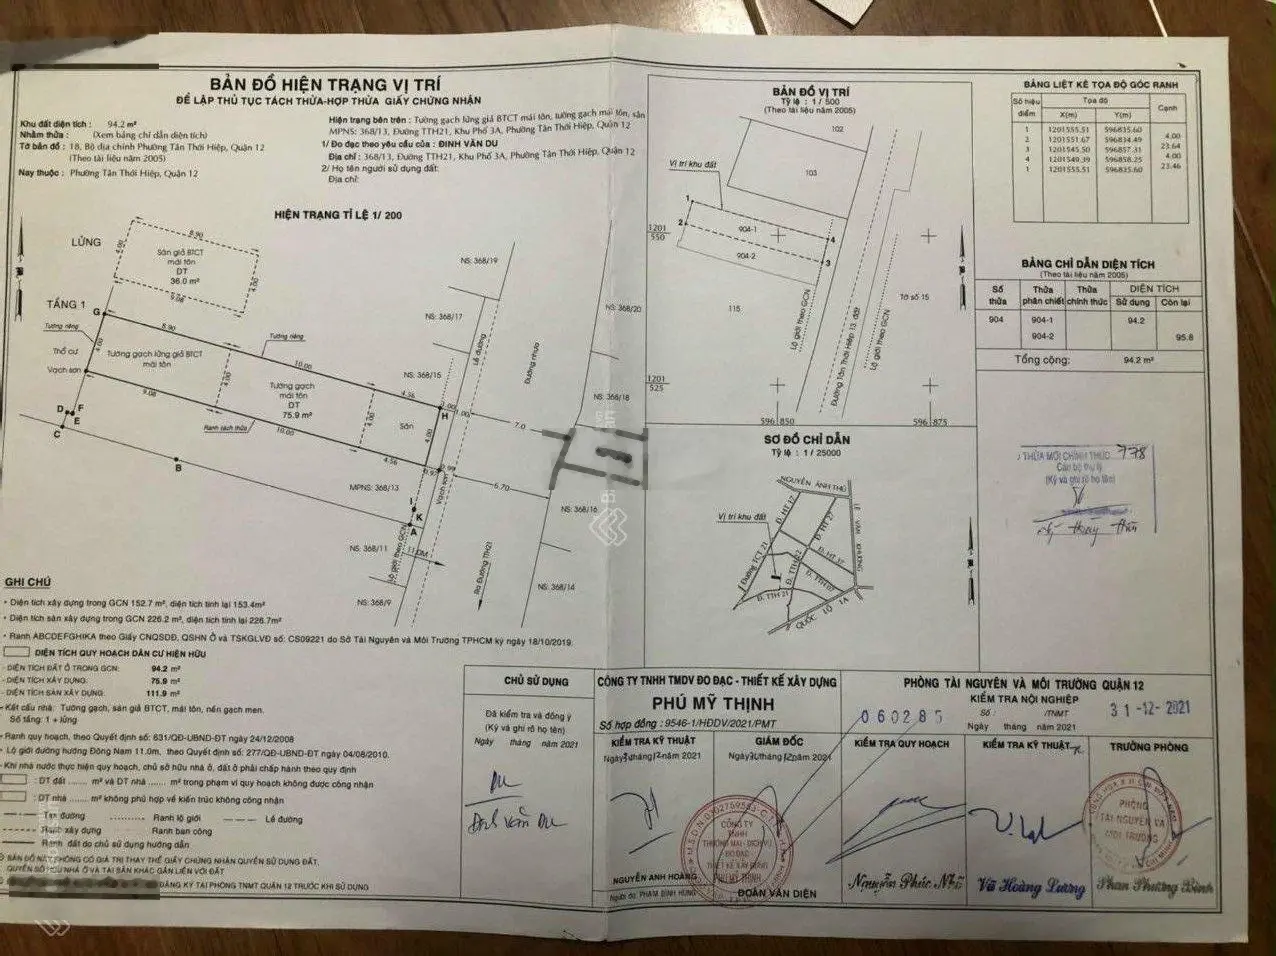 BẢN ĐỒ HIỆN TRẠNG VỊ TRÍ
ĐỂ LẬP THỦ TỤC TÁCH THỬA-HỢP THỬA GIẤY CHỨNG NHẬN
Khu đất diện tích : 94.2 m²
Nhằm thửa : (Xem bảng chỉ dẫn diện tích)
Tờ bản đồ : 18, Bộ địa chính Phường Tân Thới Hiệp, Quận 12
(Theo tài liệu 2005)
Nay thuộc : Phường Tân Thới Hiệp, Quận 12
Hiện trạng bên trên : Tường gạch lửng giả BTCT mái tôn, tường gạch mái tôn, sân
MPNS: 368/13, Đường TTH21, Khu Phố 3A, Phường Tân Thới Hiệp, Quận 12
1/ Đo đạc theo yêu cầu của : ĐINH VĂN DU
Địa chỉ : 368/13, Đường TTH21, Khu Phố 3A, Phường Tân Thới Hiệp, Quận 12
2/ Họ tên người sử dụng đất:
Địa chỉ:
HIỆN TRẠNG TỈ LỆ 1/ 200
LỬNG
8.90
4.00
Sàn giả BTCT
mái tôn
DT
36.0 m²
4.00
9.08
TẦNG 1
G
Tường riêng
8.90
Tường riêng
4.00
Thổ cư
Vạch sơn
Tường gạch lửng giả BTCT
mái tôn
10.00
4.00
Tường gạch
mái tôn
DT
75.9 m²
9.08
Ranh tách thửa
10.00
4.00
Sân
4.56
4.56
4.00
H
1.00
1.00
7.0
0.97
0.99
Vạch sơn
6.70
D
F
E
C
B
I
K
A
11.0M
MPNS: 368/13
NS: 368/19
NS: 368/17
NS: 368/15
NS: 368/11
NS: 368/9
NS: 368/20
NS: 368/18
NS: 368/16
NS: 368/14
Lề đường
Đường nhựa
Lộ giới theo GCN
Ra Đường TTH21
BẢN ĐỒ VỊ TRÍ
Tỷ lệ : 1 / 500
(Theo tài liệu năm 2005)
102
103
Vị trí khu đất
1
2
904-1
904-2
4
3
115
Tờ số 15
Lộ giới theo GCN
Đường Tân Thới Hiệp 13, đất
Lộ giới theo GCN
1201
550
1201
525
596 850
596 875
SƠ ĐỒ CHỈ DẪN
Tỷ lệ : 1 / 25000
NGUYỄN ẢNH THỦ
Vị trí khu đất
Đ. HT 17
Đ. HT 27
LÊ VĂN KHƯƠNG
Đường TCT 21
Đ. HT 37
Đ. TTH 21
QUỐC LỘ 1A
BẢNG LIỆT KÊ TỌA ĐỘ GÓC RANH
Số hiệu điểm Tọa độ Cạnh
X(m) Y(m)
1 1201555.51 596835.60
4.00
2 1201551.67 596834.49
23.64
3 1201545.50 596857.31
4.00
4 1201549.39 596858.25
23.46
1 1201555.51 596835.60
BẢNG CHỈ DẪN DIỆN TÍCH
(Theo tài liệu năm 2005)
Số thửa Thửa phân chiết Thửa chính thức DIỆN TÍCH
Sử dụng Còn lại
904 904-1 94.2
904-2 95.8
Tổng cộng: 94.2 m²
THỬA MỚI CHÍNH THỨC 778
Cán bộ thụ lý
(Ký và ghi rõ họ tên)
GHI CHÚ
• Diện tích xây dựng trong GCN 152.7 m², diện tích tính lại 153.4m²
• Diện tích sàn xây dựng trong GCN 226.2 m², diện tích tính lại 226.7m²
• Ranh ABCDEFGHIKA theo Giấy CNQSDĐ, QSHN Ở và TSKGLVĐ số: CS09221 do Sở Tài Nguyên và Môi Trường TPHCM ký ngày 18/10/2019.
DIỆN TÍCH QUY HOẠCH DÂN CƯ HIỆN HỮU
- DIỆN TÍCH ĐẤT Ở TRONG GCN: 94.2 m²
- DIỆN TÍCH XÂY DỰNG: 75.9 m²
- DIỆN TÍCH SÀN XÂY DỰNG: 111.9 m²
- Kết cấu nhà: Tường gạch, sàn giả BTCT, mái tôn, nền gạch men.
Số tầng: 1 + lửng
- Ranh quy hoạch, theo Quyết định số: 631/QĐ-UBND-ĐT ngày 24/12/2008
- Lộ giới đường hướng Đông Nam 11.0m, theo Quyết định số: 277/QĐ-UBND-ĐT ngày 04/08/2010.
- Khi nhà nước thực hiện quy hoạch, chủ sở hữu nhà ở, đất ở phải chấp hành theo quy định
: DT đất ..... m² và DT nhà ..... m² trong phạm vi quy hoạch không được công nhận
: DT nhà ..... m² không phù hợp về kiến trúc không công nhận
Tim đường Ranh lộ giới Lề đường
Ranh xây dựng Ranh ban công
Ranh đất do chủ sử dụng hướng dẫn
BẢN ĐỒ NÀY KHÔNG CÓ GIÁ TRỊ THAY THẾ GIẤY CHỨNG NHẬN QUYỀN SỬ DỤNG ĐẤT,
QUYỀN SỞ HỮU NHÀ Ở VÀ TÀI SẢN KHÁC GẮN LIỀN VỚI ĐẤT
ĐĂNG KÝ TẠI PHÒNG TNMT QUẬN 12 TRƯỚC KHI SỬ DỤNG
CHỦ SỬ DỤNG
Đã kiểm tra và đồng ý
(Ký và ghi rõ họ tên)
Ngày tháng năm 2021
Du
Đinh Văn Du
CÔNG TY TNHH TMDV ĐO ĐẠC - THIẾT KẾ XÂY DỰNG
PHÚ MỸ THỊNH
Số hợp đồng : 9546-1/HĐDV/2021/PMT
KIỂM TRA KỸ THUẬT
Ngày 30 tháng 12 năm 2021
NGUYỄN ANH HOÀNG
Người đo: PHẠM ĐÌNH HÙNG
GIÁM ĐỐC
Ngày 30 tháng 12 năm 2021
CÔNG TY
TNHH
THƯƠNG MẠI - DỊCH VỤ
ĐO ĐẠC
THIẾT KẾ XÂY DỰNG
PHÚ MỸ THỊNH
ĐOÀN VĂN DIỆN
PHÒNG TÀI NGUYÊN VÀ MÔI TRƯỜNG QUẬN 12
KIỂM TRA NỘI NGHIỆP
060285
Số : /TNMT
Ngày tháng năm 2021
31-12-2021
KIỂM TRA QUY HOẠCH
Nguyễn Phúc Nhĩ
KIỂM TRA KỸ THUẬT
Vũ Hoàng Lương
TRƯỞNG PHÒNG
PHÒNG
TÀI NGUYÊN VÀ
MÔI TRƯỜNG
Phan Phương Bình